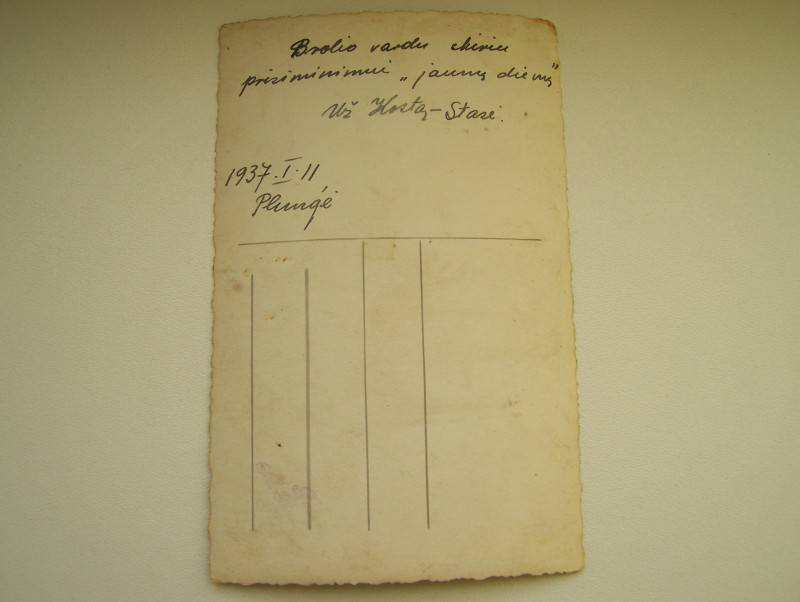 Brolio vardu skiriu
prisiminimui „jaunų dienų”
Už Kostą – Stasė.
1937.I.11
Plungė